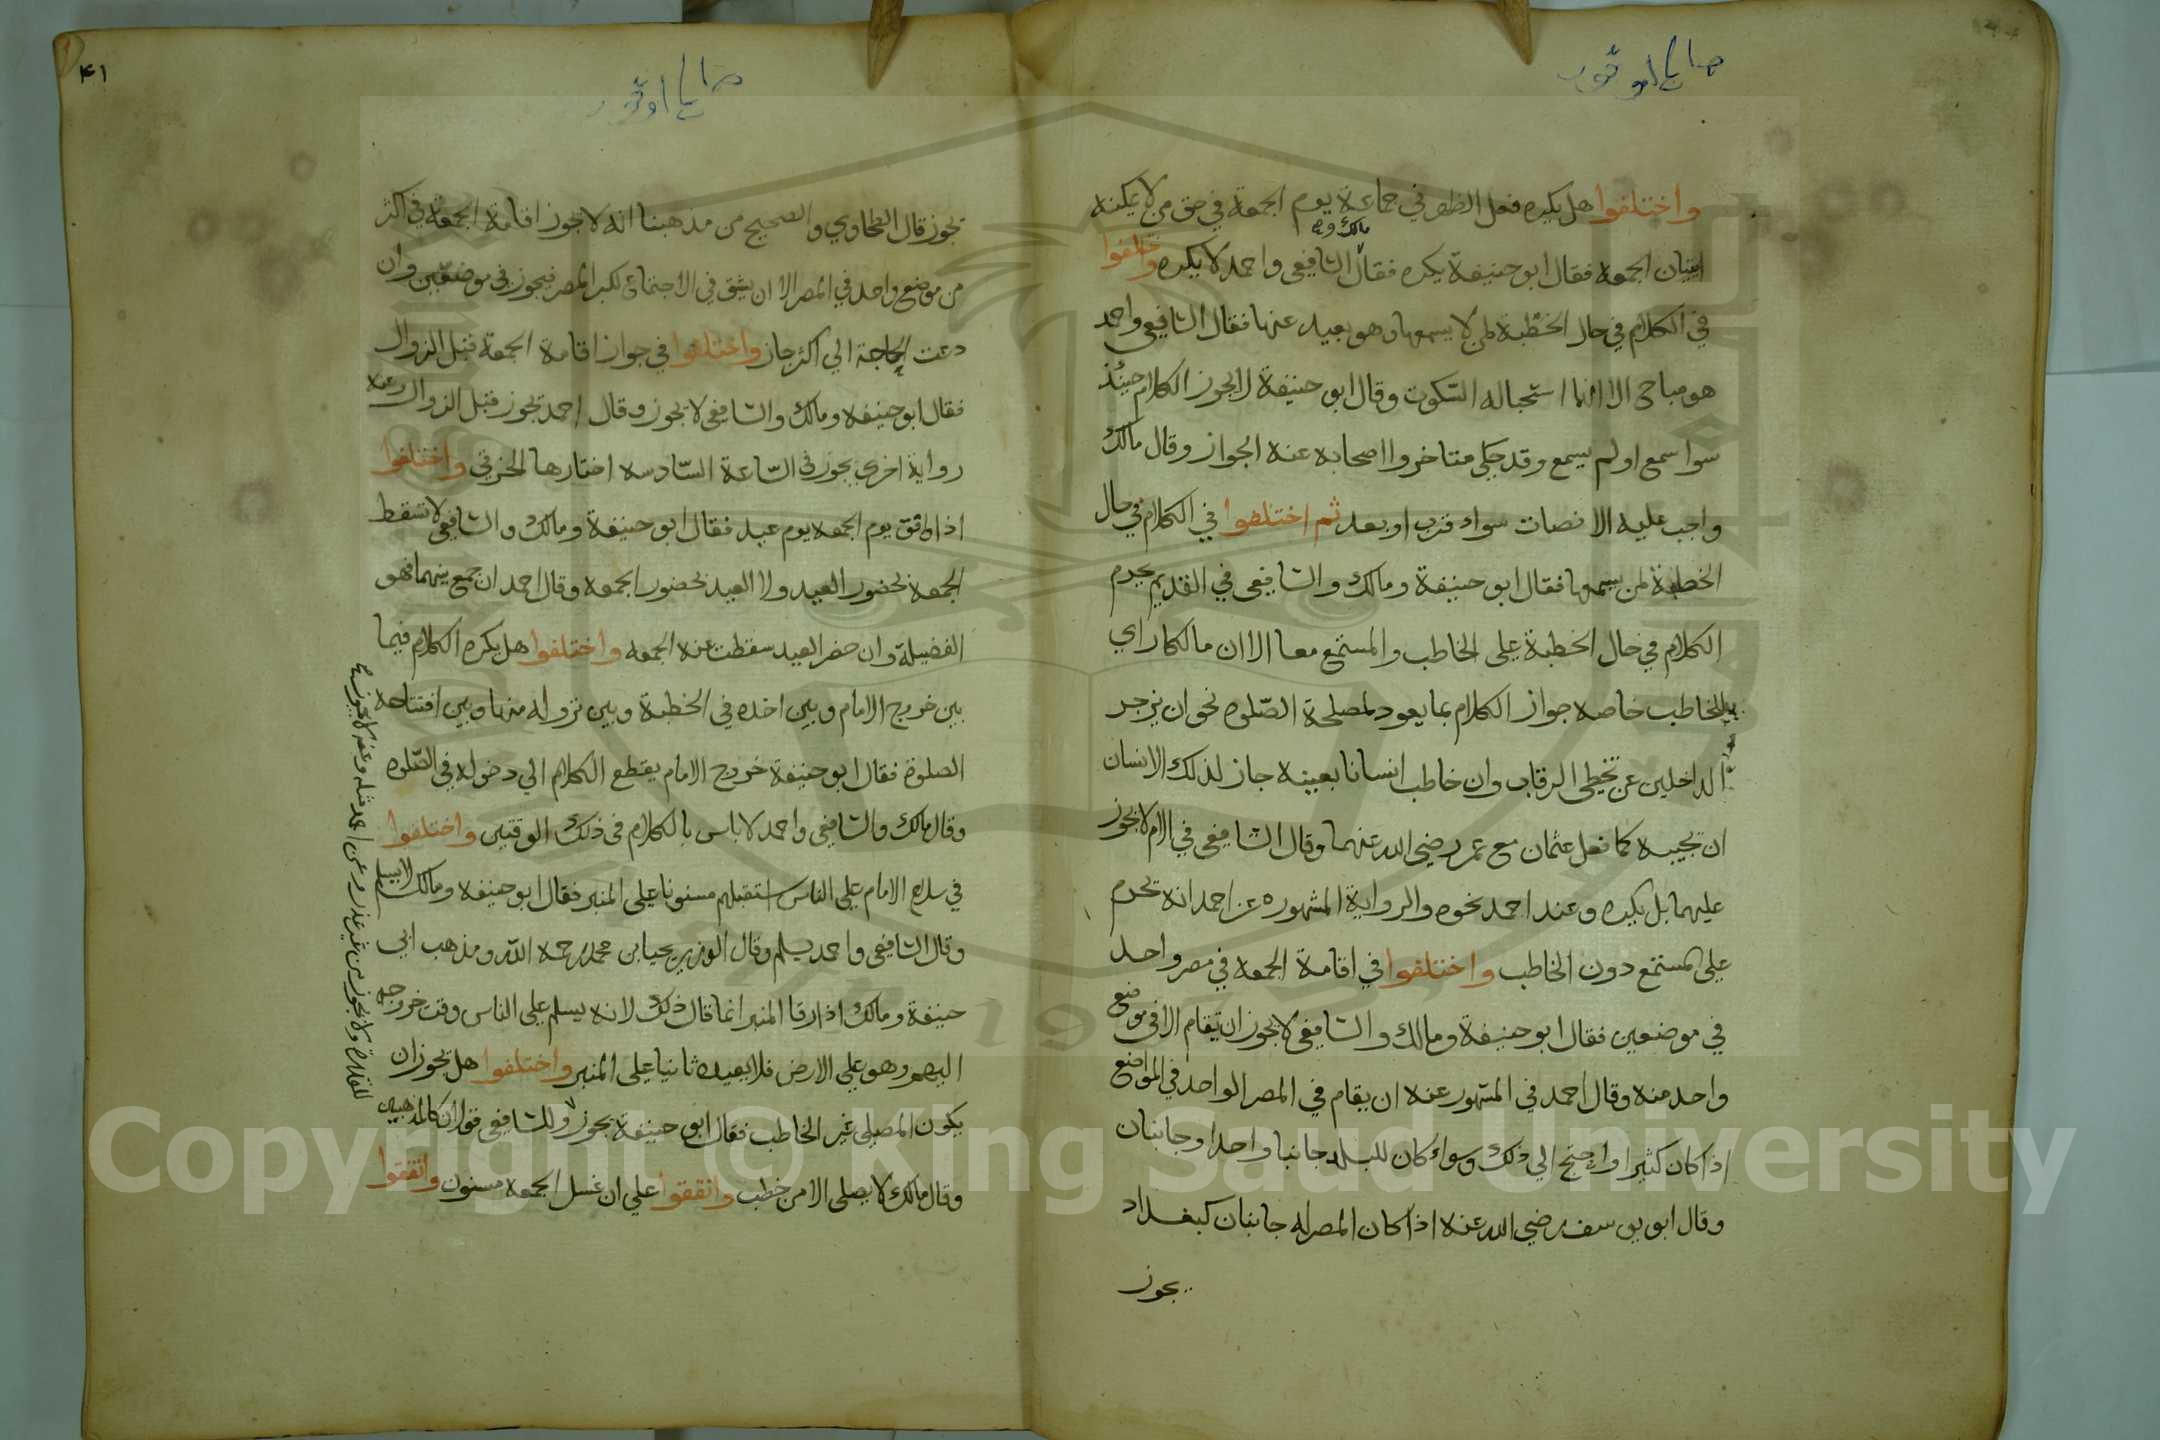 واختلفوا هل يكره فعل الظهر في جماعة يوم الجمعة في حق من لا يمكنه
مالك و
اتيان الجمعه فقال ابو حنيفة يكره فقال الشافيعى واحمد لا يكره واختلفوا
في الكلام في حال الخطبة لمن لا يسمعها وهو بعيد عنها فقال الشافيعى واحمد
هو مباح الا انما استحبا له السكوت وقال ابو حنيفة لا يجوز الكلام حينئذ
سوا سمع او لم يسمع وقد حكى متاخروا اصحابه عنه الجواز وقال مالك
واجب عليه الانصات سواء قرب او بعد ثم اختلفوا في الكلام في حال
الخطبة لمن يسمعها فقال ابو حنيفة ومالك والشافيعى في القديم يحرم
الكلام في حال الخطبة على الخاطب والمستمع معا الا ان مالكا راي
للخاطب خاصه جواز الكلام بما يعود لمصلحة الصلوه نحو ان يزجر
الداخلين عن تخطى الرقاب وان خاطب انسانا بعينه جاز لذلك الانسان
ان يجيبه كما فعل عثمان مع عمر رضي الله عنهما وقال الشافيعى في الام لا يحرم
عليهما بل يكره وعند احمد نحوه والرواية المشهوره عن احمد انه يحرم
على المستمع دون الخاطب واختلفوا في اقامة الجمعه في مصر واحد
في موضعين فقال ابو حنيفة ومالك والشافيعى لا يجوز ان تقام الا في موضع
واحد منه وقال احمد في المشهور عنه ان يقام في المصر الواحد في المواضع
اذا كان كثيرا واحتيج الي ذلك وسواء كان للبلد جانبا واحدا وجانبان
وقال ابو يوسف رضي الله عنه اذا كان المصر له جانبان كبغداد
يجوز
٤١
تجوز قال الطحاوي والصحيح من مذهبنا انه لا يجوز اقامة الجمعة في اكثر
من موضع واحد في المصر الا ان يشق في الاجتماع لكبر المصر فيجوز في موضعين وان
دعت الحاجة الي اكثر جاز واختلفوا في جواز اقامة الجمعة قبل الزوال
فقال ابو حنيفه ومالك والشافيعى لا يجوز وقال احمد تجوز قبل الزوال وعنه
رواية اخري يجوز في الساعة السادسه اختارها الخرقي واختلفوا
اذا وافق يوم الجمعه يوم عيد فقال ابو حنيفة ومالك والشافيعى لا تسقط
الجمعه بحضور العيد ولا العيد بحضور الجمعه وقال احمد ان جمع بينهما فهو
الفضيلة وان حضر العيد سقطت عنه الجمعه واختلفوا هل يكره الكلام فيما
بين خروج الامام وبين اخذه في الخطبة وبين نزوله منها وبين افتتاحه
الصلوة فقال ابو حنيفة خروج الامام يقطع الكلام الي دخوله في الصلوه
وقال مالك والشافيعى واحمد لا باس بالكلام في ذلك الوقتين واختلفوا
في سلام الامام على الناس استقبلهم مسنونا على المنبر فقال ابو حنيفه ومالك لا يسلم
وقال الشافيعى واحمد يسلم وقال الوزير يحيا بن محمد رحمه الله ومذهب ابي
حنيفة ومالك اذا رقا المنبر انما قال ذلك لانه يسلم على الناس وقت خروجه
اليهم وهو علي الارض فلا يعيده ثانيا على المنبر واختلفوا هل تجوز ان
يكون المصلى غير الخاطب فقال ابو حنيفة يجوز وللشافيعى قولان كالمذهبين
وقال مالك لا يصلى الا من خطب واتفقوا علي ان غسل الجمعه مسنون واتفقوا
Copyright © King Saud University